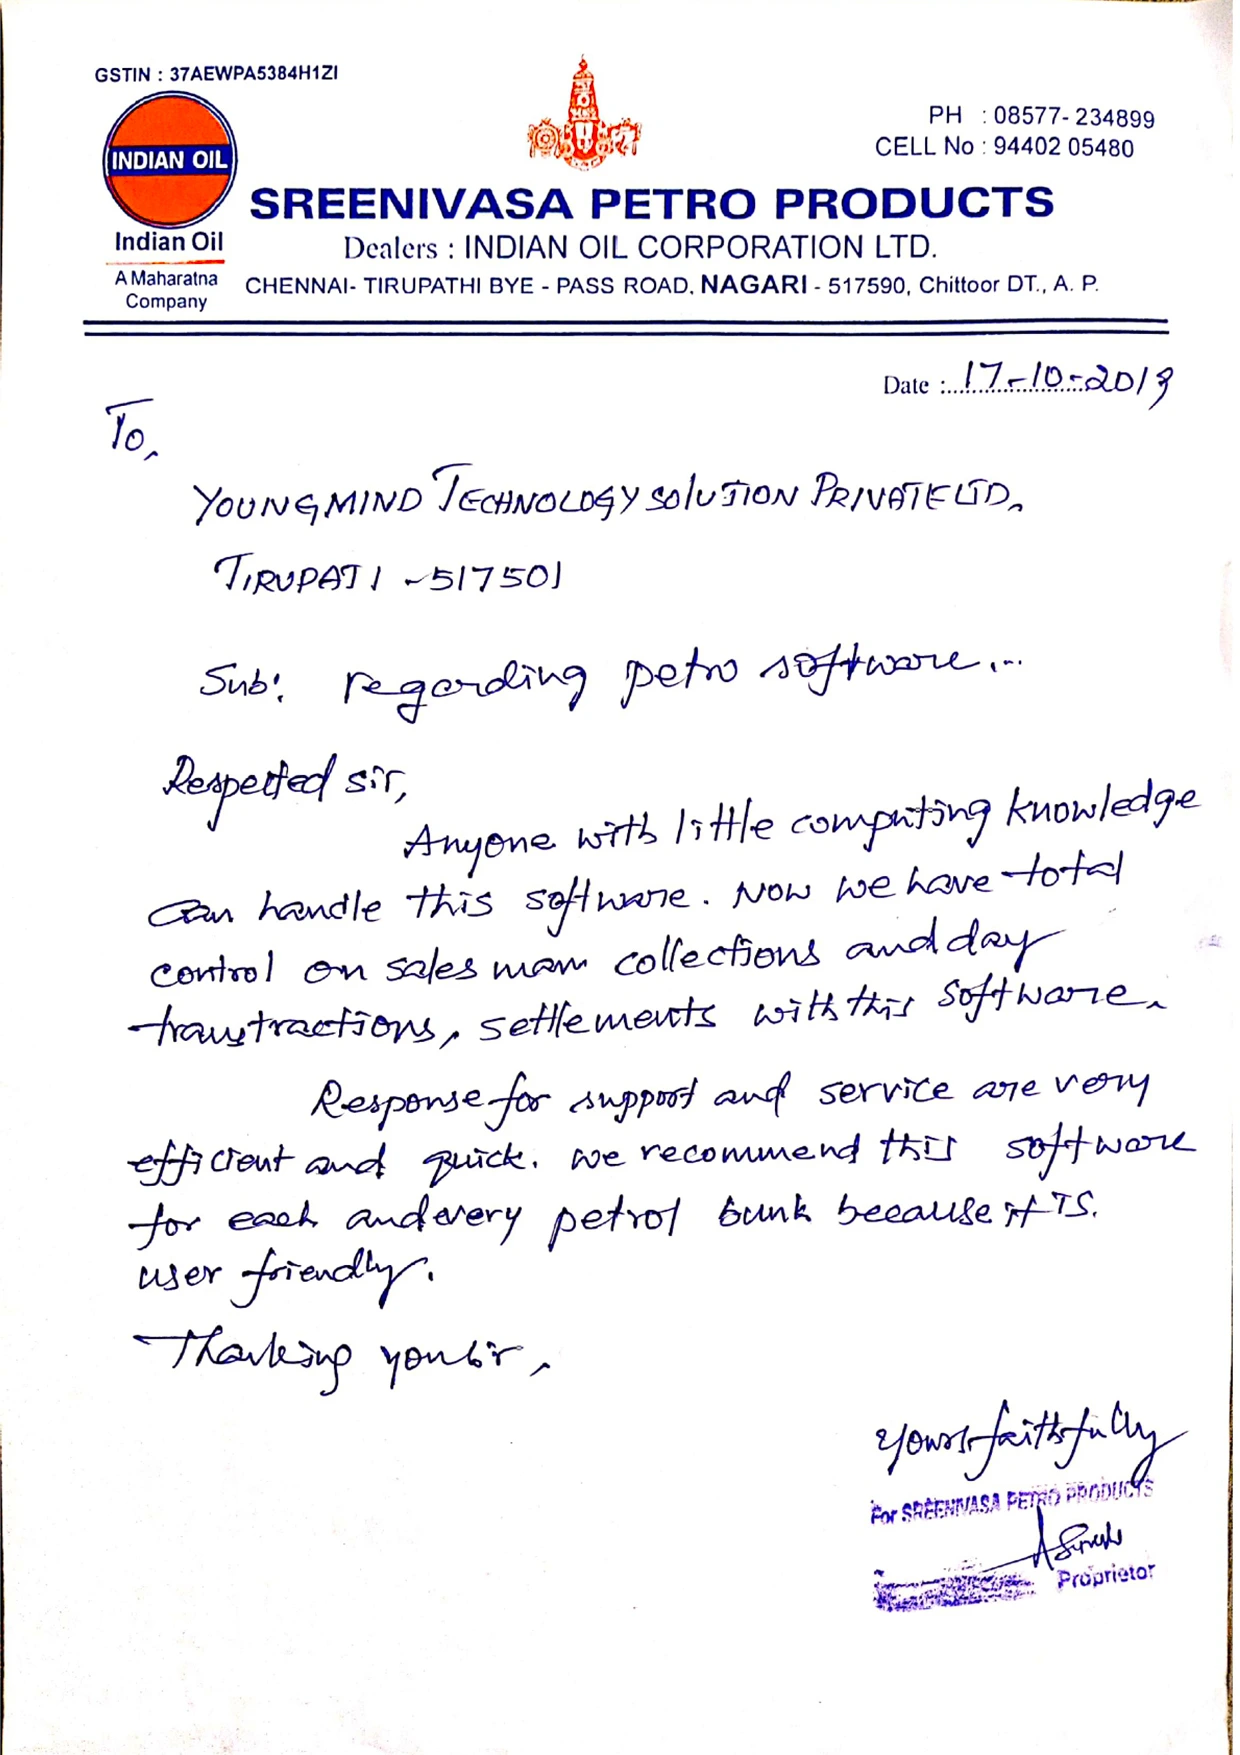 GSTIN : 37AEWPA5384H1ZI
PH : 08577- 234899
CELL No : 94402 05480
INDIAN OIL
Indian Oil
A Maharatna
Company
SREENIVASA PETRO PRODUCTS
Dealers : INDIAN OIL CORPORATION LTD.
CHENNAI- TIRUPATHI BYE - PASS ROAD, NAGARI - 517590, Chittoor DT., A. P.
Date :..17-10-2019
To,
YOUNGMIND TECHNOLOGY SOLUTION PRIVATE LTD.
TIRUPATI -517501
Sub: regarding petro software...
Respected sir,
Anyone with little computing knowledge
can handle this software. Now we have total
control on sales man collections and day
transtractions, settlements with this software.
Response for support and service are very
efficient and quick. we recommend this software
for each and every petrol bunk because it is.
user friendly.
Thanking you sir,
Yours faithfully
For SREENIVASA PETRO PRODUCTS
Proprietor